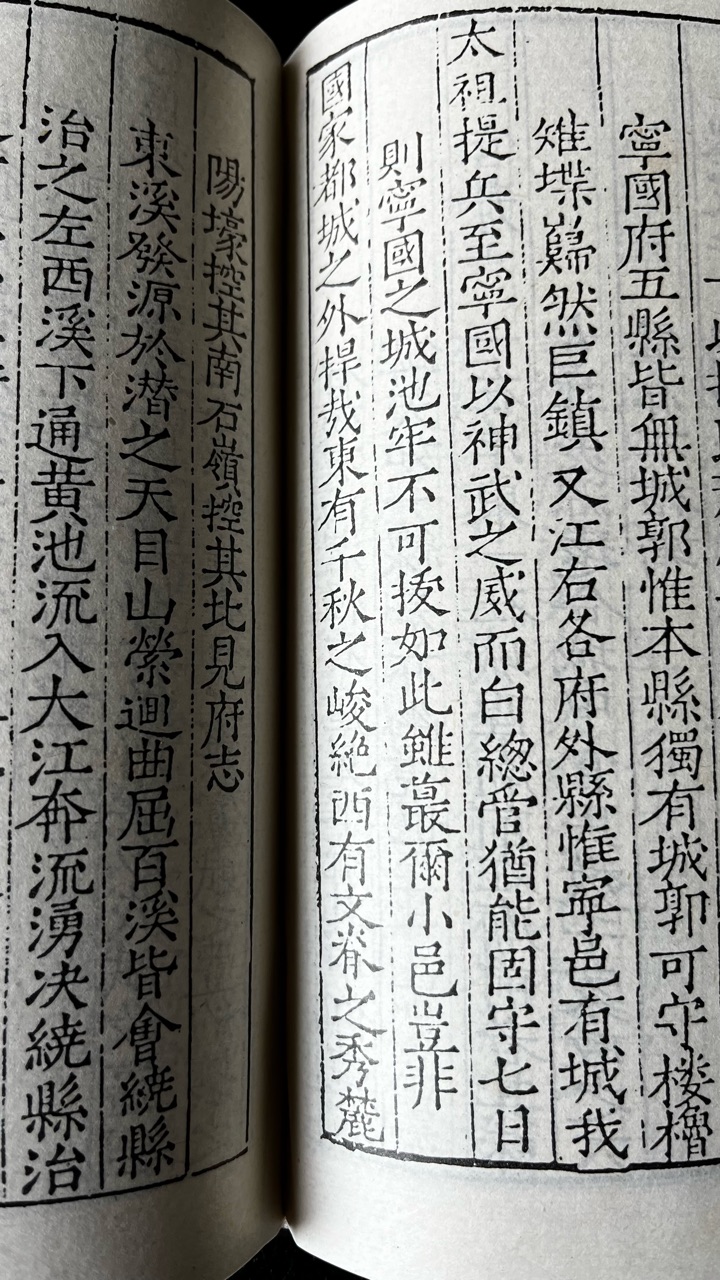 寧國府五縣皆無城郭惟本縣獨有城郭可守楼櫓
雉堞巋然巨鎮又江右各府外縣惟寧邑有城我
太祖提兵至寧國以神武之威而白總管猶能固守七日
則寧國之城池牢不可拔如此雖蕞爾小邑豈非
國家都城之外捍哉東有千秋之峻絶西有文脊之秀麓
陽壕控其南石嶺控其北見府志
東溪發源於潜之天目山縈迴曲屈百溪皆會繞縣
治之左西溪下通黄池流入大江奔流湧決繞縣治